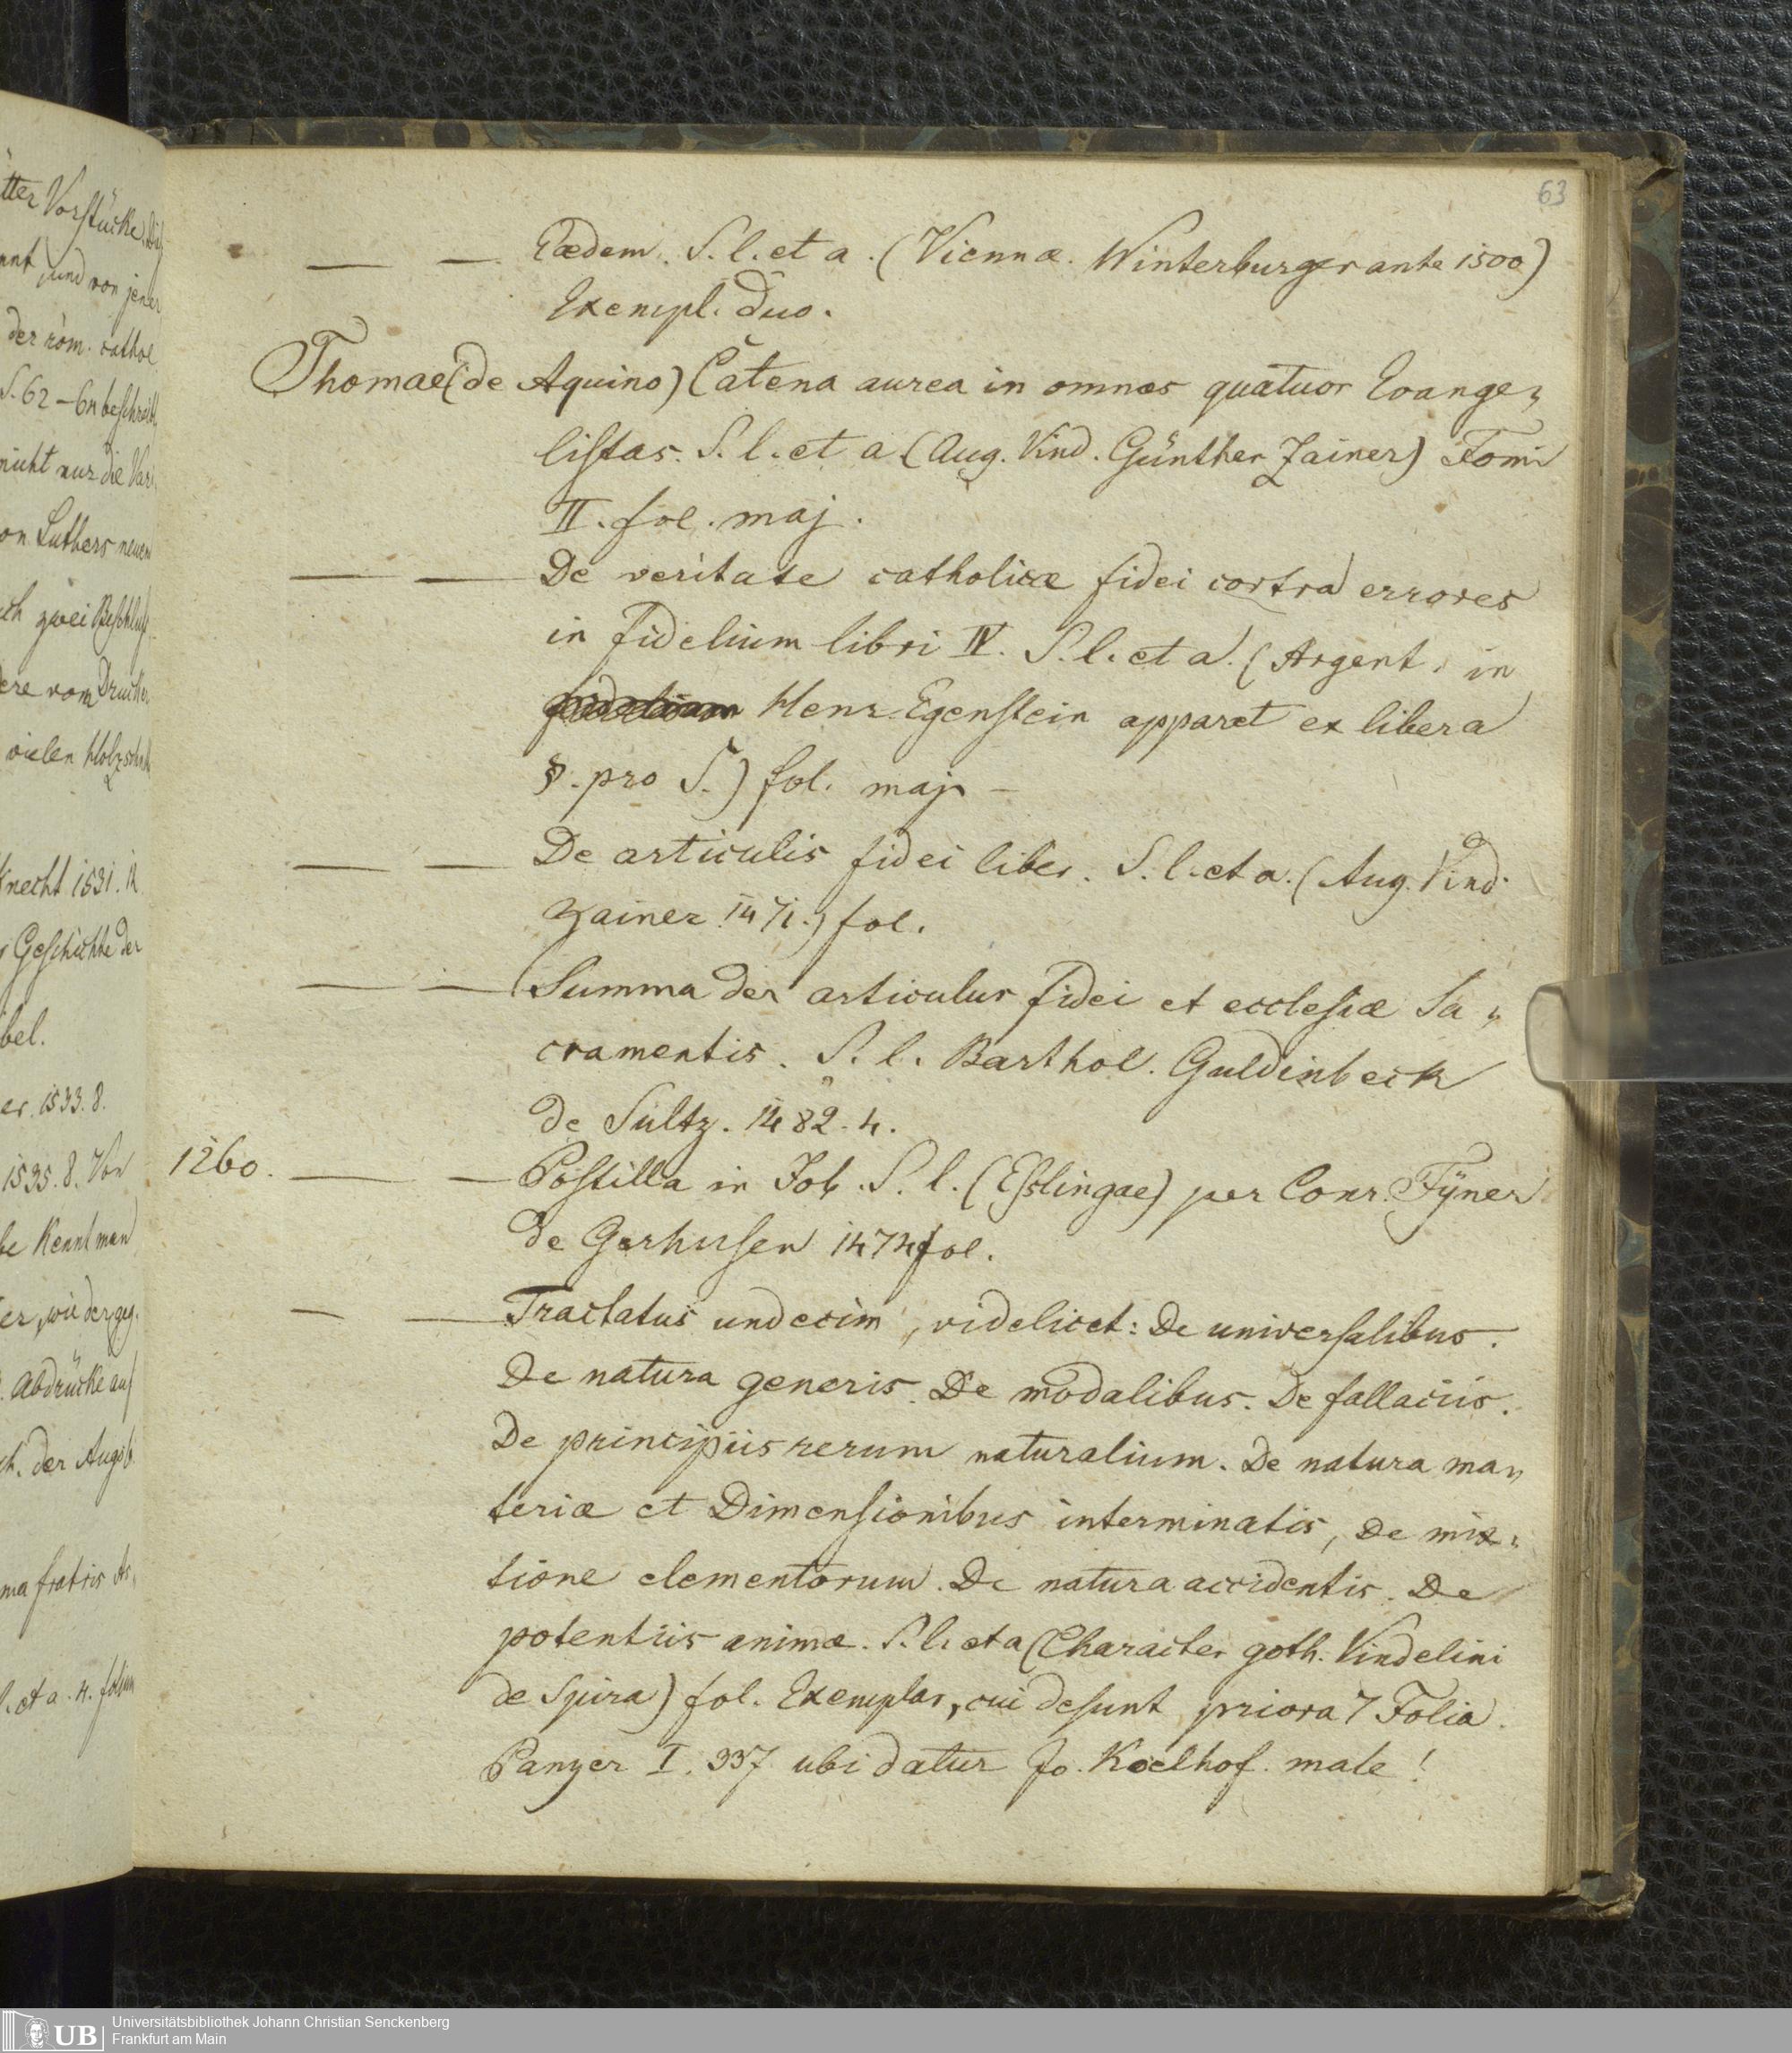 63
— — Eædem. S. l. et a. (Viennæ. Winterburger ante 1500)
Exempl. duo.
Thomae (de Aquino) Catena aurea in omnes quatuor Evange,,
listas. S. l. et a (Aug. Vind. Günther Zainer) Tomi
II. fol. maj.
— — De veritate catholicæ fidei cortra errores
in fidelium libri IV. S. l. et a. (Argent. in
Henr. Egenstein apparet ex libera
§. pro S.) fol. maj. —
— — De articulis fidei liber. S. l. et a. (Aug. Vind.
Zainer 1471.) fol.
— — Summa der articulus fidei et ecclesiæ Sa,,
cramentis. S. l. Barthol. Guldinbeck
de Sultz. 1482. 4.
1260. — — Postilla in Job. S. l. (Esslingae) per Conr. Fÿner
de Gerhusen 1474 fol.
— — Tractatus undecim, videlicet: De universalibus.
De natura generis. De modalibus. De fallaciis.
De principiis rerum naturalium. De natura ma,,
teriæ et Dimensionibus interminatis, De mix,,
tione elementorum. De natura accidentis. De
potentiis animæ. S. l. et a (Character goth. Vindelini
de Spira) fol. Exemplar, cui desunt priora 7 Folia.
Panzer I. 337 ubi datur Jo. Koelhof. male!
tter Vorstücke
und von jener
der röm. cathol
S. 62–64 beschreibt
nicht nur die Vari
on Luthers neuem
ch zwei Beschluß
ere vom Drucker
vielen Holzschn
Knecht 1531. 12
r Geschichte der
bel.
er. 1533. 8.
1535. 8. Von
be kennt man
er, wie der geg.
. Abdrücke auf
ch. der Augsb.
ma fratris As,,
l. et a. 4. folium
UB
Universitätsbibliothek Johann Christian Senckenberg
Frankfurt am Main